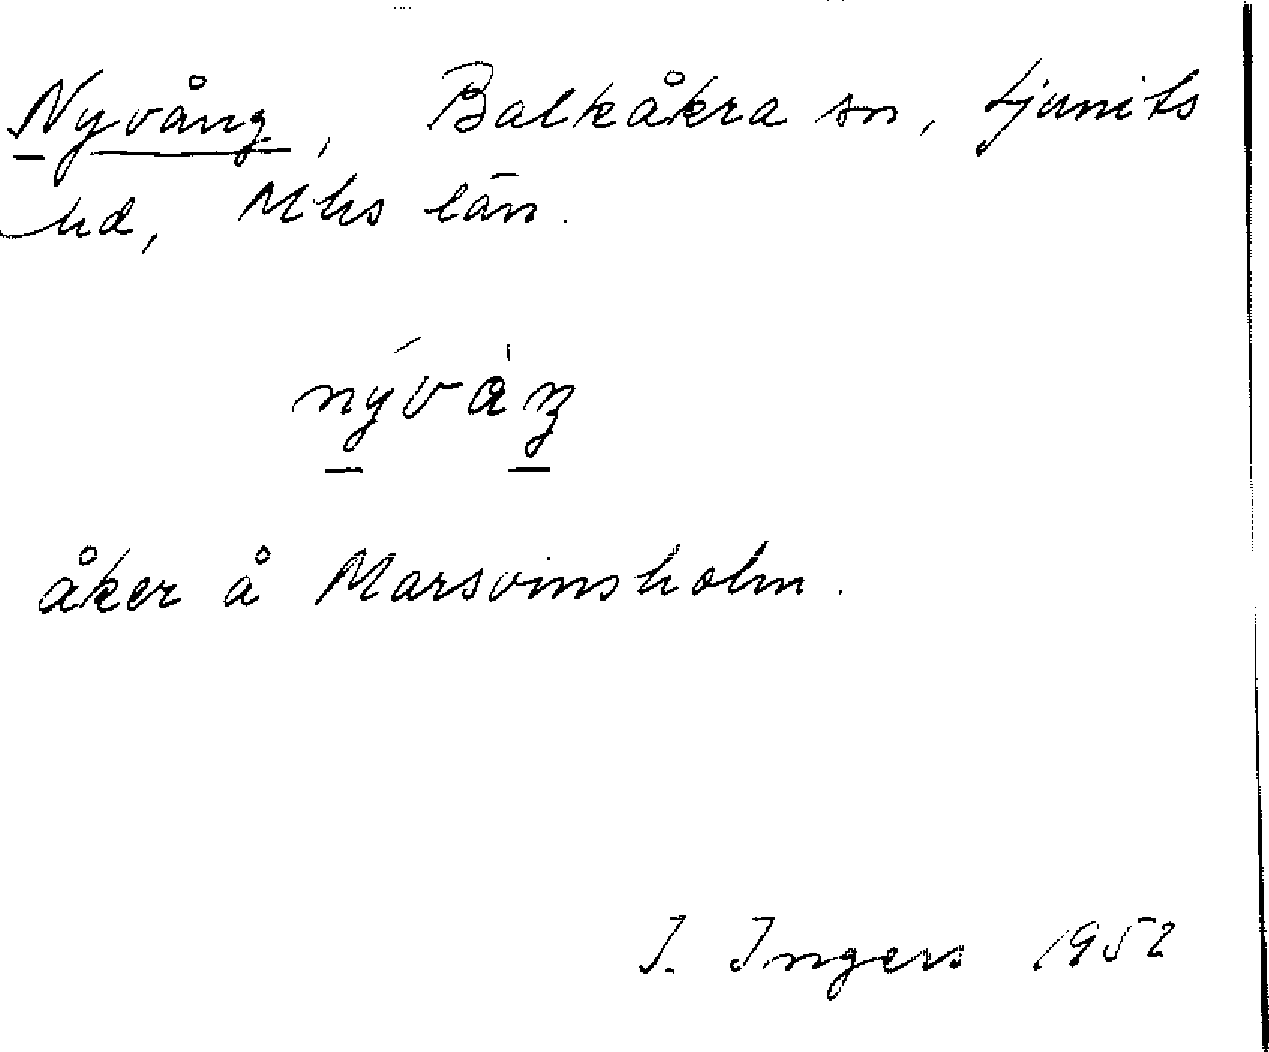 Nyvång, Balkåkra sn, Ljunits
hd, Mhs län.
nývàŋ
åker å Marsvinsholm.
I. Ingers 1952